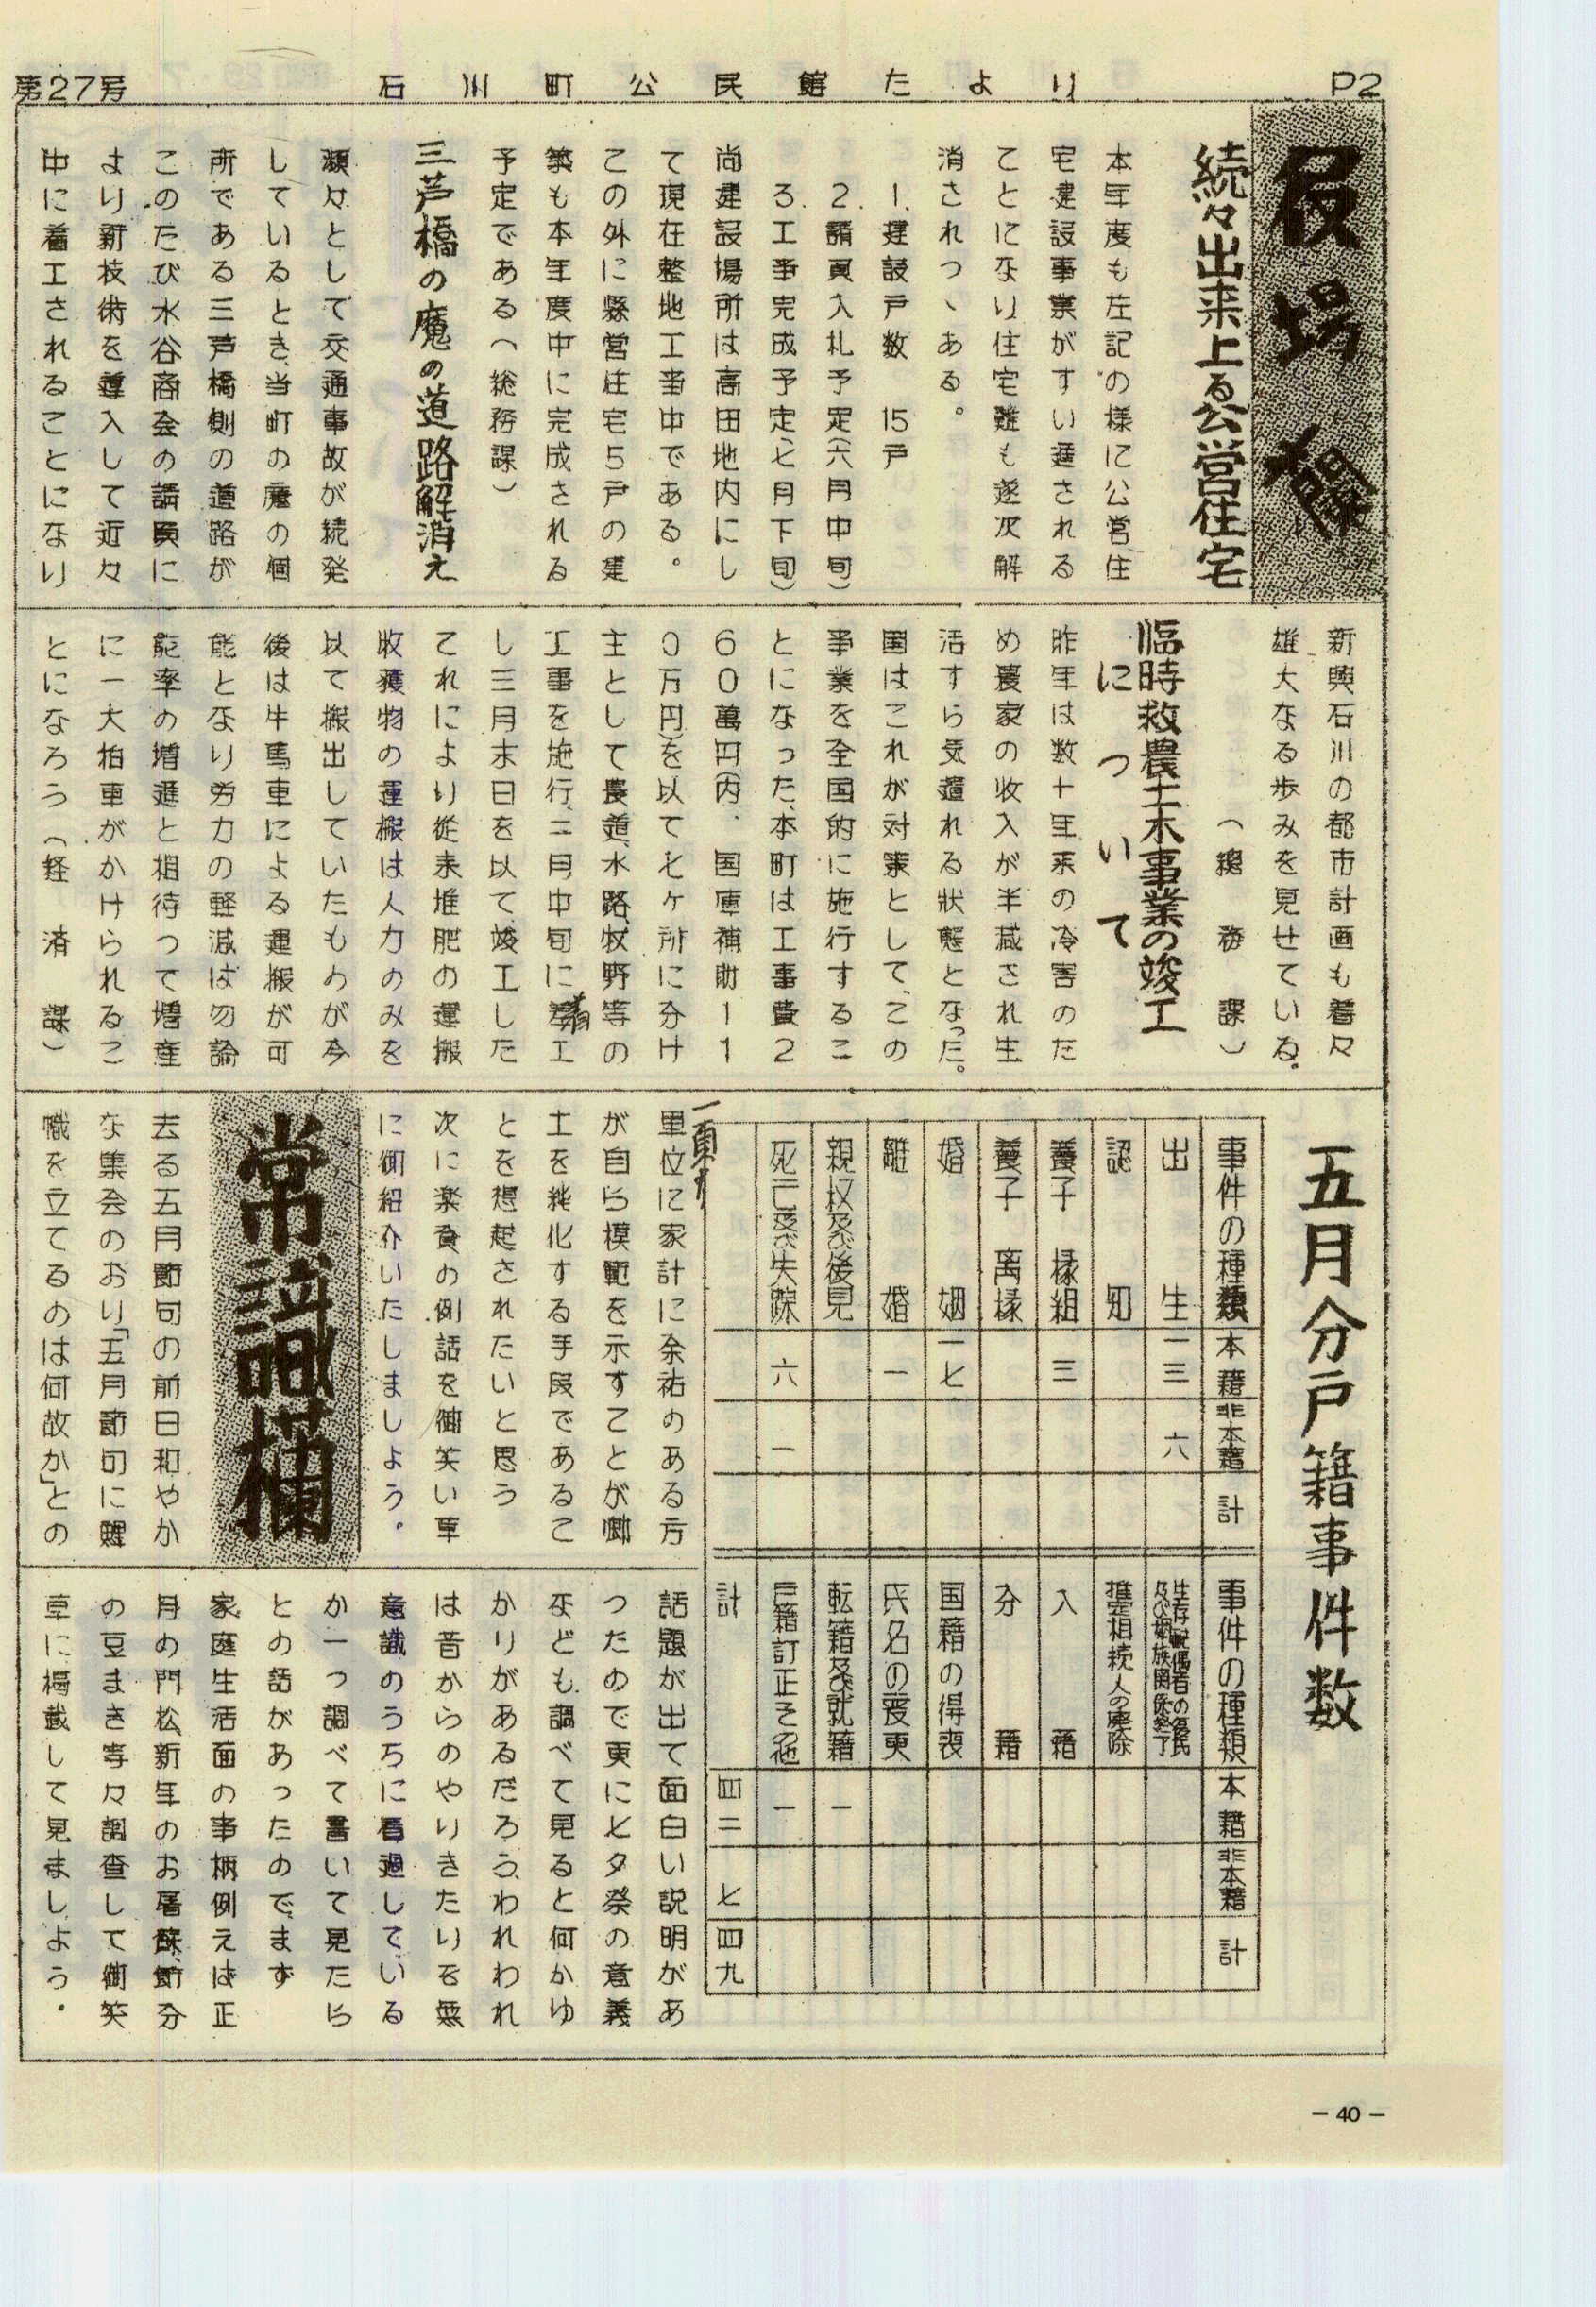 第27号
石川町公民館たより
P2
役場欄
続々出来上る公営住宅
本年度も左記の様に公営住
宅建設事業がすい進される
ことになり住宅難も逐次解
消されつゝある。
1.建設戸数　15戸
2.請負入札予定(六月中旬)
3.工事完成予定(七月下旬)
尚建設場所は高田地内にし
て現在整地工事中である。
この外に縣営住宅5戸の建
築も本年度中に完成される
予定である(総務課)
三芦橋の魔の道路解消え
頻々として交通事故が続発
しているとき、当町の魔の個
所である三芦橋側の道路が
このたび水谷商会の請負に
より新技術を導入して近々
中に着工されることになり
新興石川の都市計画も着々
雄大なる歩みを見せている.
(総務課)
臨時救農土木事業の竣工
について
昨年は数十年来の冷害のた
め農家の收入が半減され生
活すら気遣れる狀態となった。
国はこれが対策として、この
事業を全国的に施行するこ
とになった、本町は工事費2
60萬円(内、国庫補助11
0万円)を以て七ヶ所に分け
主として農道、水路、牧野等の
工事を施行、二月中旬に着工
し三月末日を以て竣工した
これにより従来堆肥の運搬
收獲物の運搬は人力のみを
以て搬出していたものが今
後は牛馬車による運搬が可
能となり労力の軽減は勿論
能率の増進と相待つて増産
に一大拍車がかけられるこ
とになろう(経済課)
五月分戸籍事件数
事件の種類　本籍　非本籍　計
出生　一三　六
認知
養子縁組　三
養子离縁
婚姻　一七
離婚　一
親权及び後見
死亡及び失踪　六　一
事件の種類　本籍　非本籍　計
生存配偶者の復氏及び姻族関係終了
推定相続人の廃除
入籍
分籍
国籍の得喪
氏名の変更
転籍及び就籍　一
戸籍訂正その他　一
計　四三　七　四九
一頁より
単位に家計に余祐のある方
が自ら模範を示すことが郷
土を純化する手段であるこ
とを想起されたいと思う
次に楽負の例話を御笑い草
に御紹介いたしましよう.
常識欄
去る五月節句の前日和やか
な集会のおり「五月節句に鯉
幟を立てるのは何故か」との
話題が出て面白い説明があ
つたので更に七夕祭の意義
なども調べて見ると何かゆ
かりがあるだろう、われわれ
は昔からのやりきたりを無
意識のうちに看過している
か一つ調べて書いて見たら
との話があったのでまず
家庭生活面の事柄例えば正
月の門松新年のお屠蘇、節分
の豆まき等々調査して御笑
草に掲載して見ましよう.
－40－